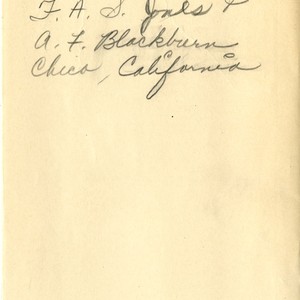 F. A. S. Jones &
A. F. Blackburn
Chico, California